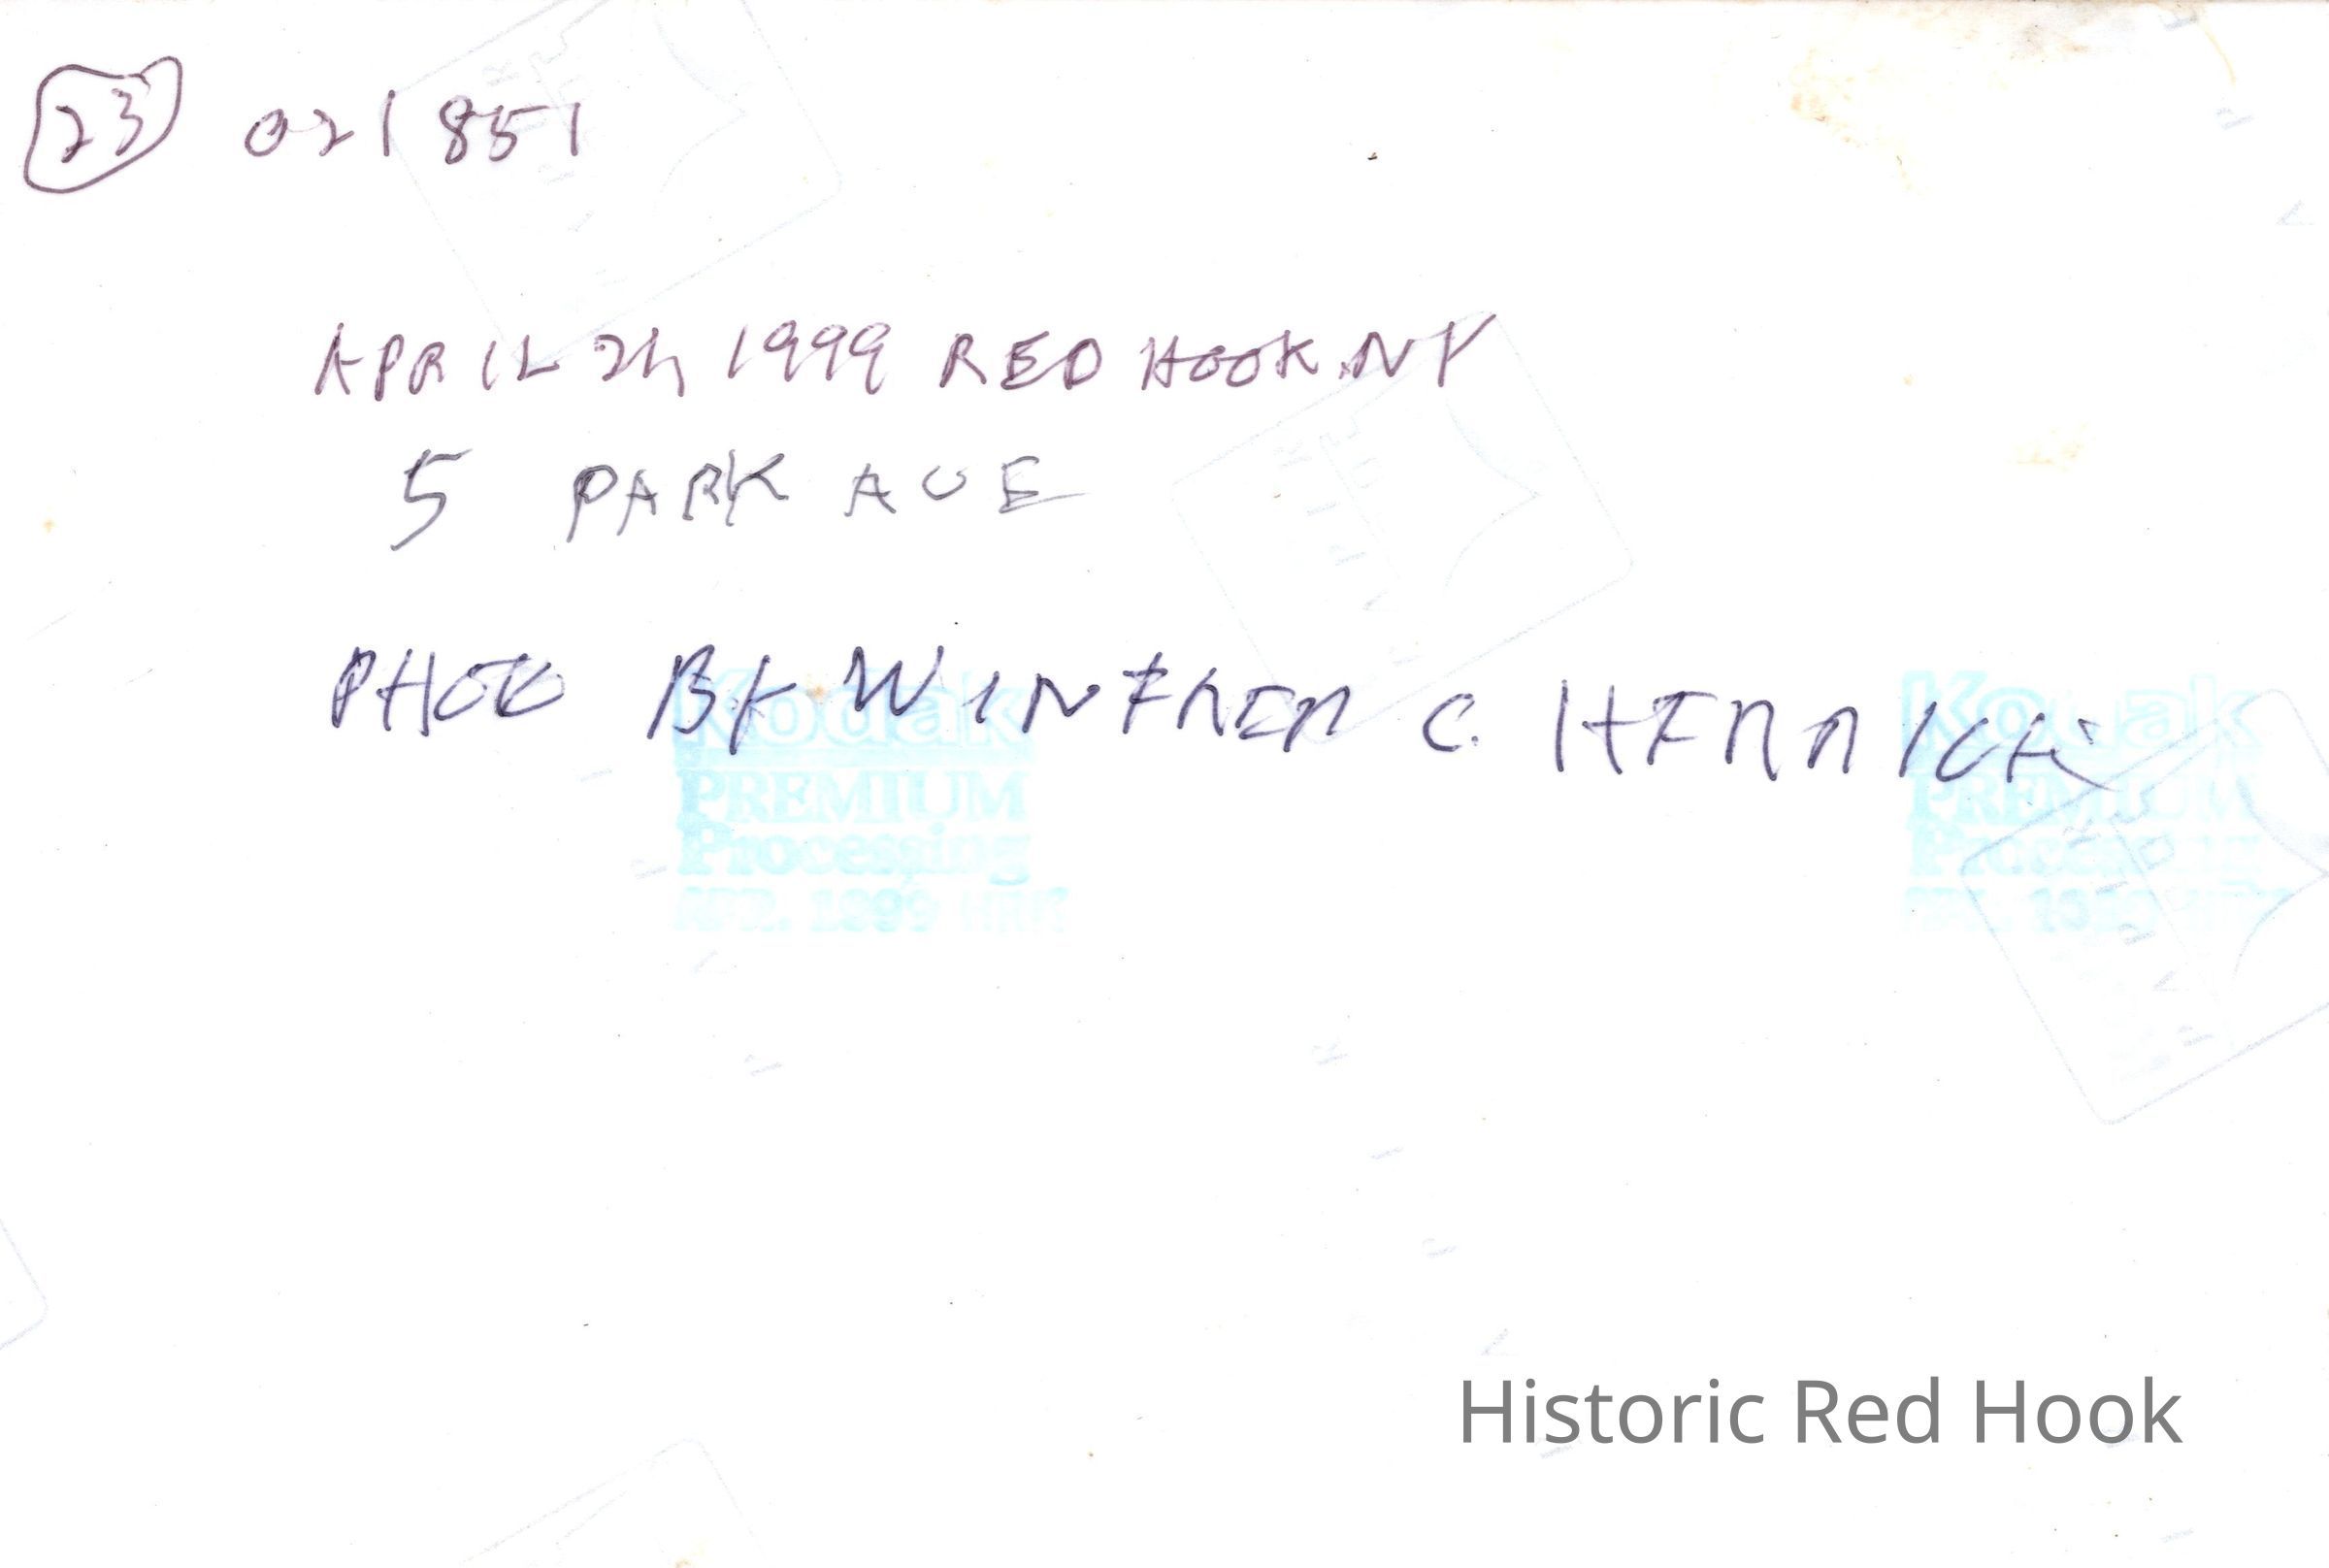 23 021851
APRIL 24 1999 RED HOOK NY
5 PARK AVE
PHOTO BY WINFRED C. HERRICK
Kodak Kodak
PREMIUM PREMIUM
Processing Processing
APR. 1999
Historic Red Hook